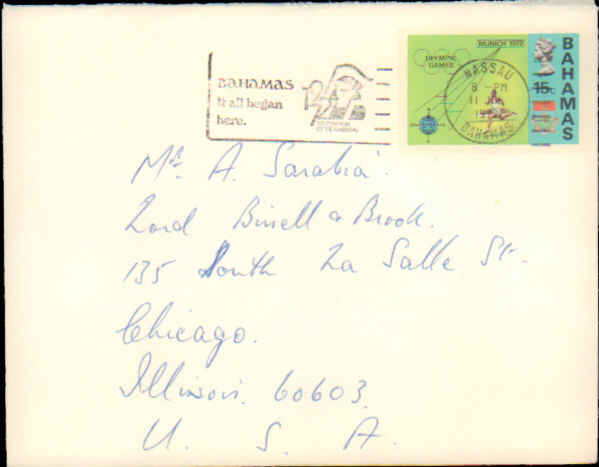 BAHAMAS
It all began
here.
MUNICH 1972
OLYMPIC
GAMES
15c
BAHAMAS
NASSAU
8 - PM
11
BAHAMAS
Mr. A. Sarabia
Lord Bissell & Brook.
135 South La Salle St.
Chicago.
Illinois. 60603.
U. S. A.